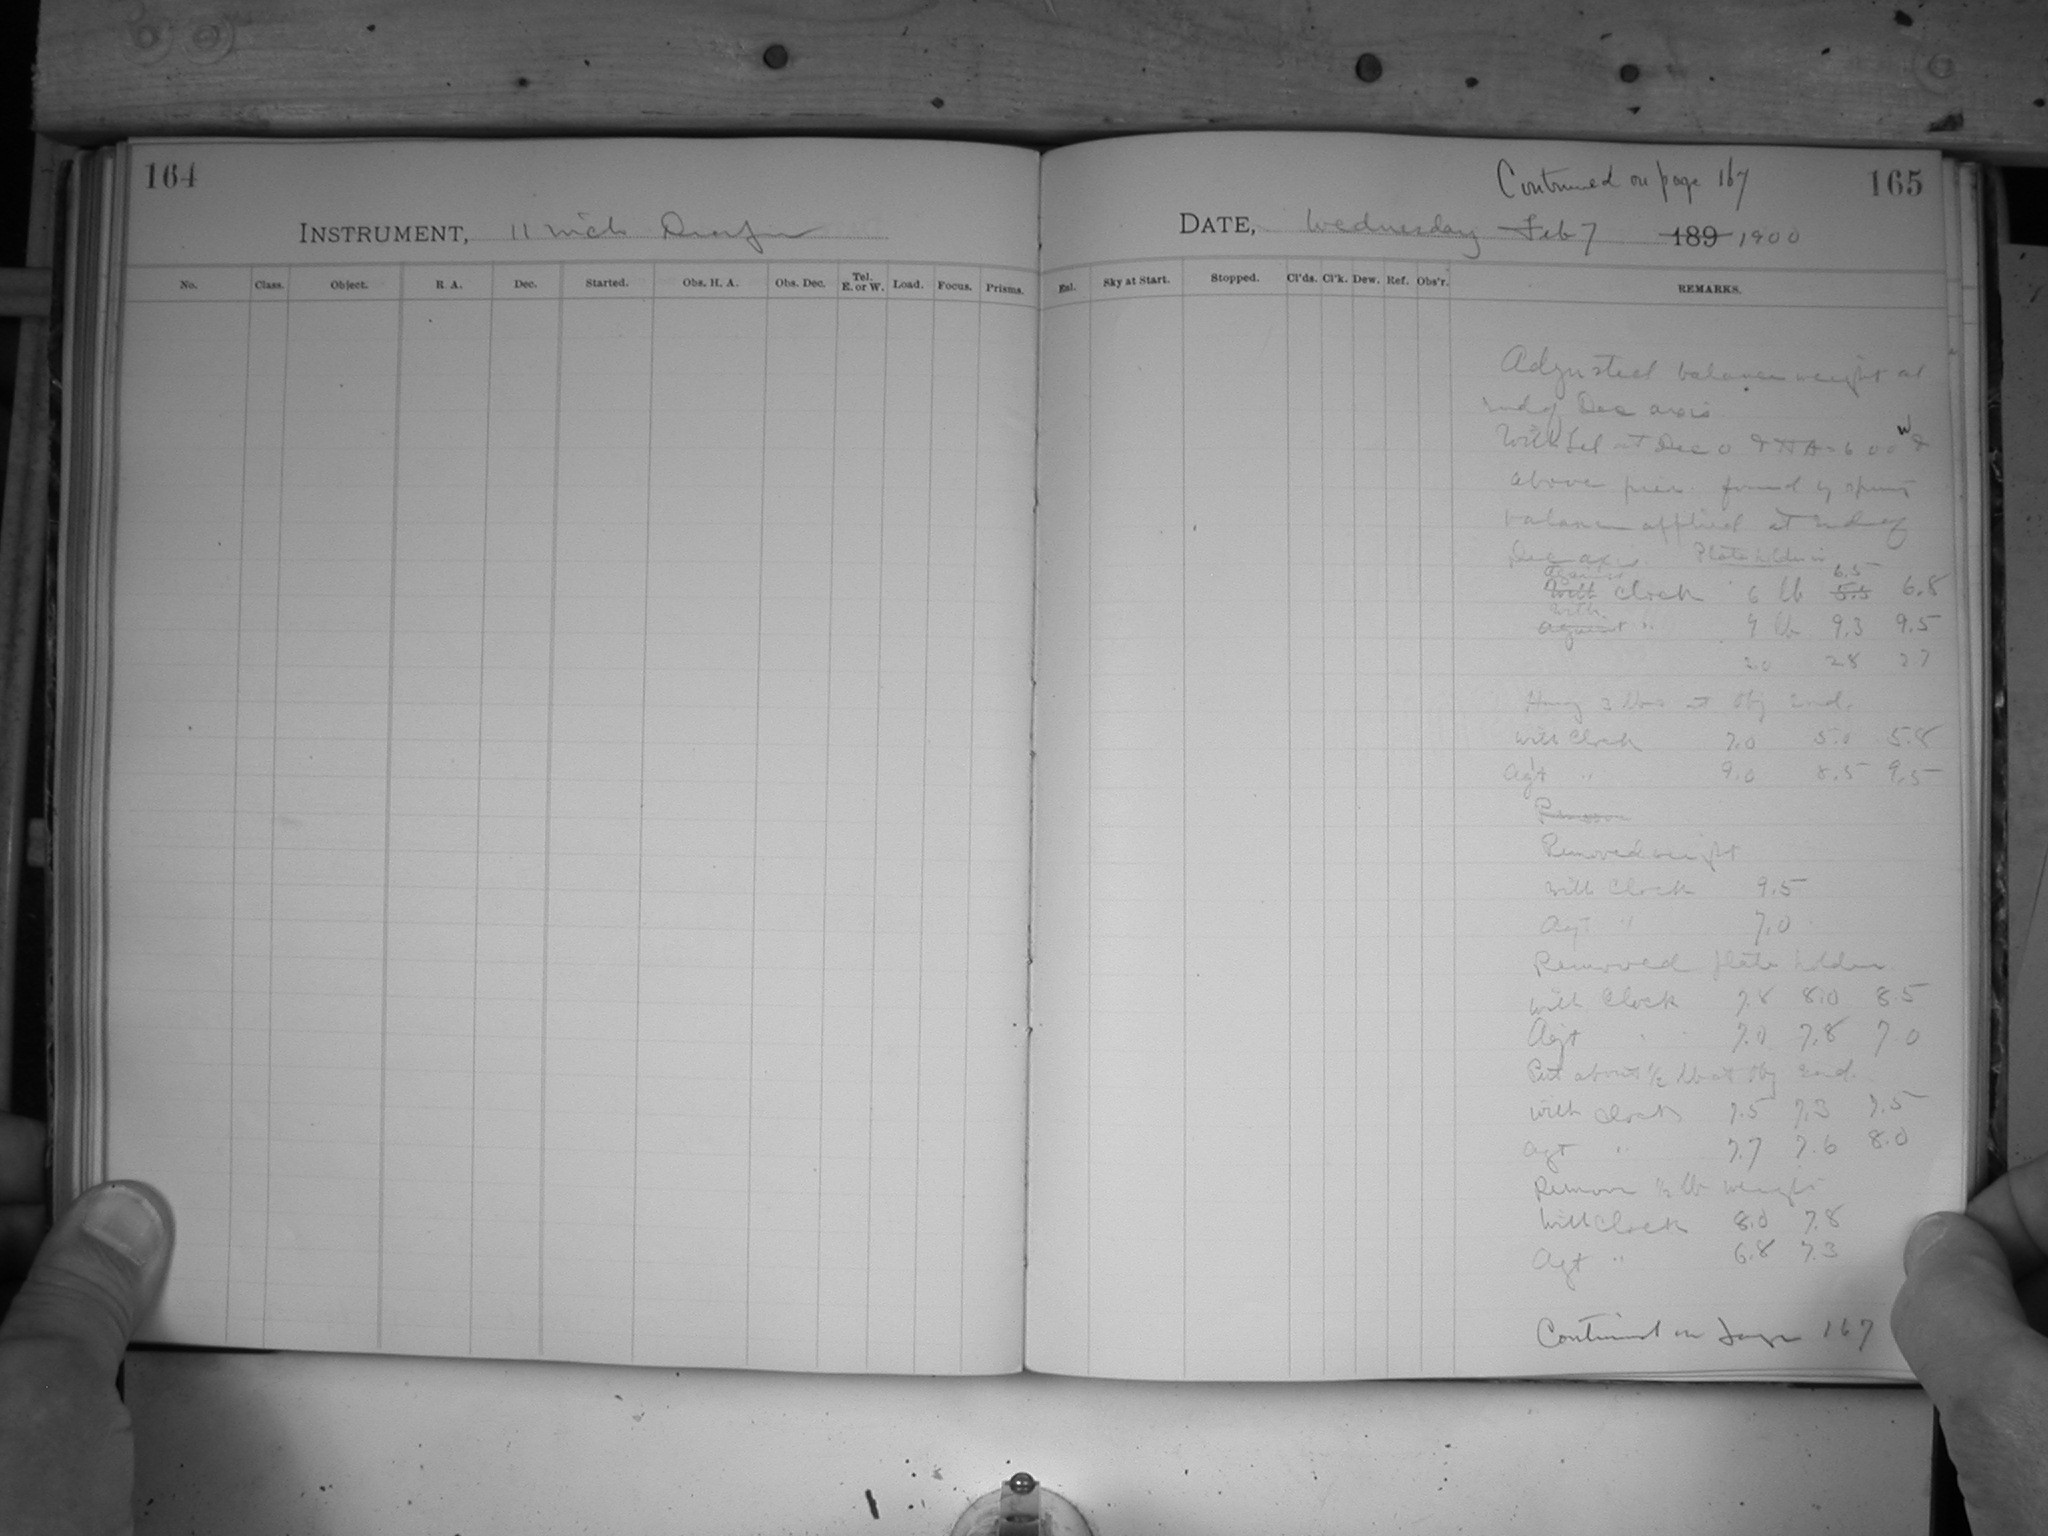 164
INSTRUMENT, 11 inch Draper
No. Class. Object. R. A. Dec. Started. Obs. H. A. Obs. Dec. Tel. E. or W. Load. Focus. Prisms.
Continued on page 167
165
DATE, Wednesday Feb 7 189 1900
Enl. Sky at Start. Stopped. Cl'ds. Cl'k. Dew. Ref. Obs'r. REMARKS.
Adjusted balance weight at
end of Dec axis
With tel at Dec 0 & HA = 6 00 w &
above pier. found by spring
balance applied at end of
Dec axis. Plate holder in
Against 6.5
With clock 6 lb 5.5 6.8
With
Against " 9 lb 9.3 9.5
3.0 2.8 2.7
Hung 3 lbs at Obj end.
With Clock 7.0 5.0 5.8
Agt " 9.0 8.5 9.5
Remove
Removed weight
With Clock 9.5
Agt " 7.0
Removed plate holder
With Clock 7.8 8.0 8.5
Agt " 7.0 7.8 7.0
Put about 1/2 lb at Obj end.
With clock 7.5 7.3 7.5
Agt " 7.7 7.6 8.0
Remove 1/2 lb weight
With Clock 8.0 7.8
Agt " 6.8 7.3
Continued on page 167